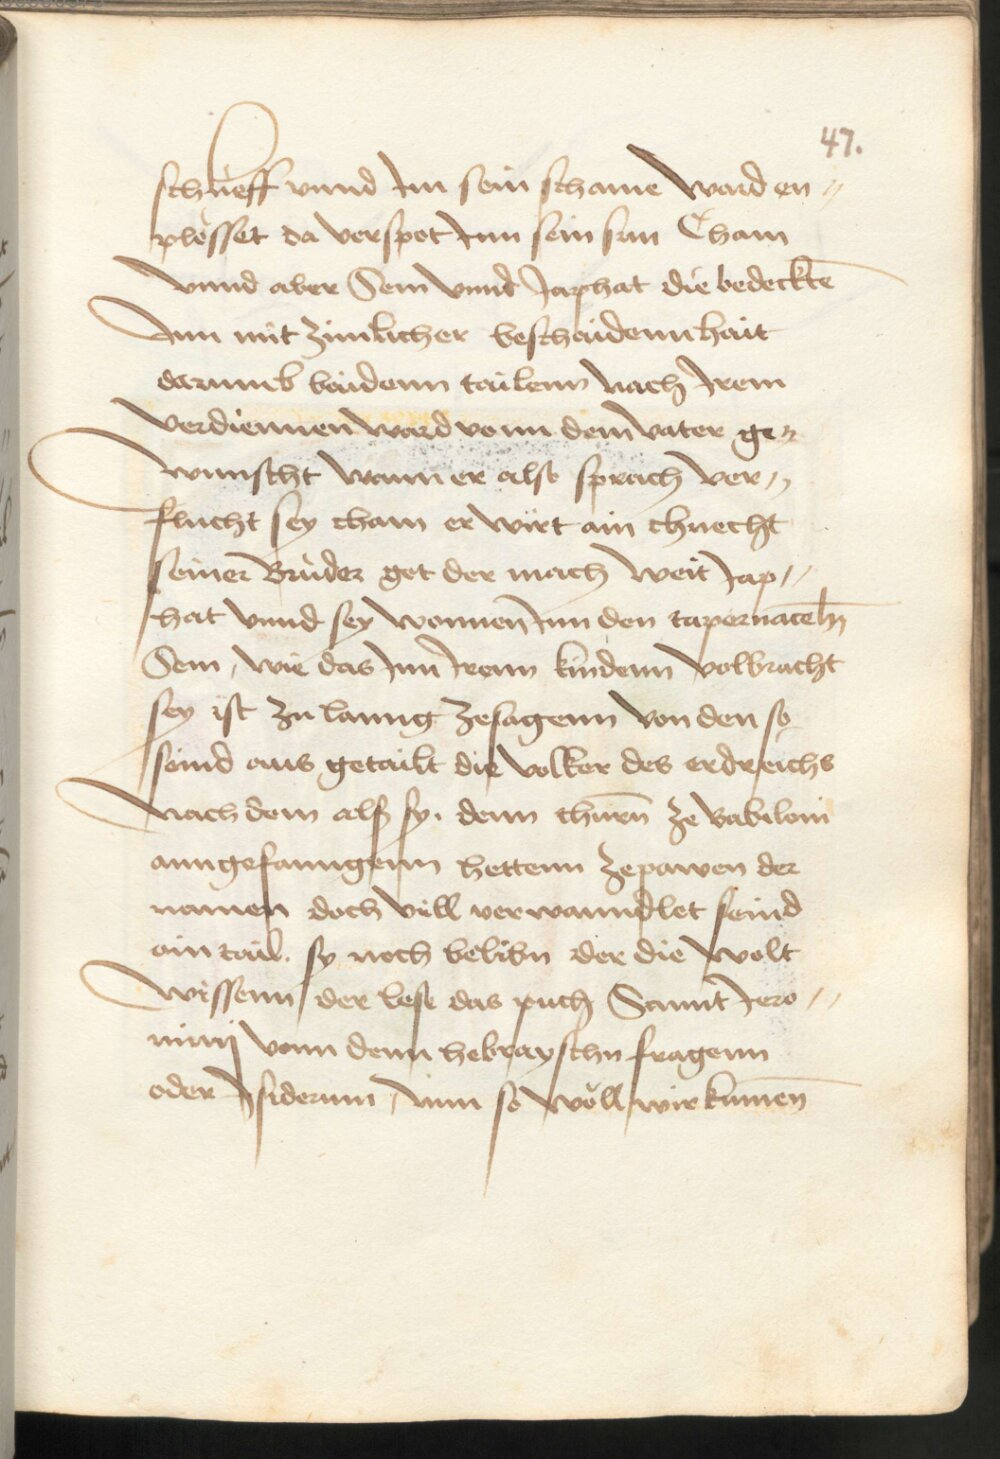 47.
schlueff vnnd Im sein schame ward en„
plösset da verspot Inn sein sun Cham
vnnd aber Sem vnnd Japhat die bedecktē
Inn mit zimlicher beschaidennhait
darumb baidenn tailenn nach Irem
verdiennen ward vonn dem vater ge„
wunscht wann er also sprach ver„
flucht sey cham er wirt ain chnecht
seiner Brüder got der mach weit Jap„
hat vnnd sey wonnen Inn den tapernaceln
Sem, wie das Inn Irenn kindenn volbracht
sey ist zu lanng zesagenn von den so
seind aus getailt die volker des erdreichs
Nach dem als sy. denn thurn̄ ze Babiloni
anngefanngenn hettenn zepawen der
namen doch vill verwanndlet seind
ain tail. sy noch belibn der die wolt
wissenn der lese das puch Sannt Jero„
nimj vonn denn hebrayschn fragenn
oder Ysiderum, Nun so wöll wir kumen̄